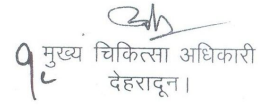 मुख्य चिकित्सा अधिकारी
देहरादून।